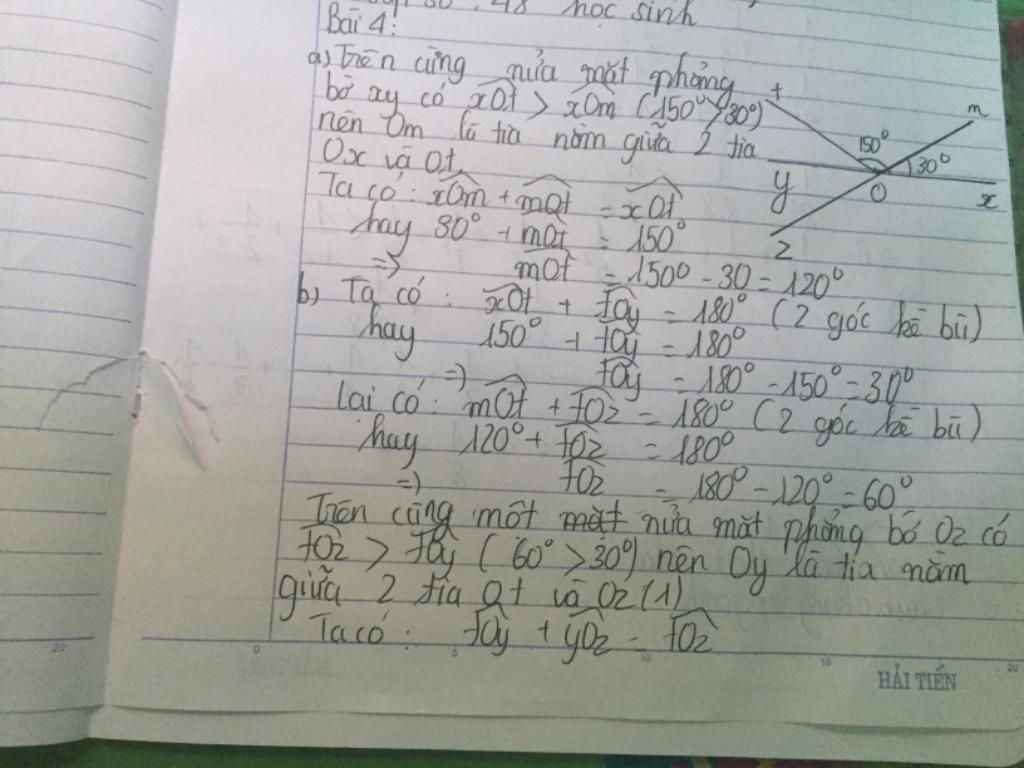 48 học sinh
Bài 4:
a) Trên cùng nửa mặt phẳng
bờ xy có xOt > xOm (150° > 30°)
nên Om là tia nằm giữa 2 tia
Ox và Ot.
Ta có: xOm + mOt = xOt
hay 30° + mOt = 150°
=> mOt = 150° - 30 = 120°
t
m
150°
30°
y
O
x
z
b) Ta có: xOt + tOy = 180° (2 góc kề bù)
hay 150° + tOy = 180°
=) tOy = 180° - 150° = 30°
Lại có: mOt + tOz = 180° (2 góc kề bù)
hay 120° + tOz = 180°
=) tOz = 180° - 120° = 60°
Trên cùng một mặt nửa mặt phẳng bờ Oz có
tOz > tOy (60° > 30°) nên Oy là tia nằm
giữa 2 tia Ot và Oz (1)
Ta có: tOy + yOz = tOz
20 0 5 10 15 20
HẢI TIẾN